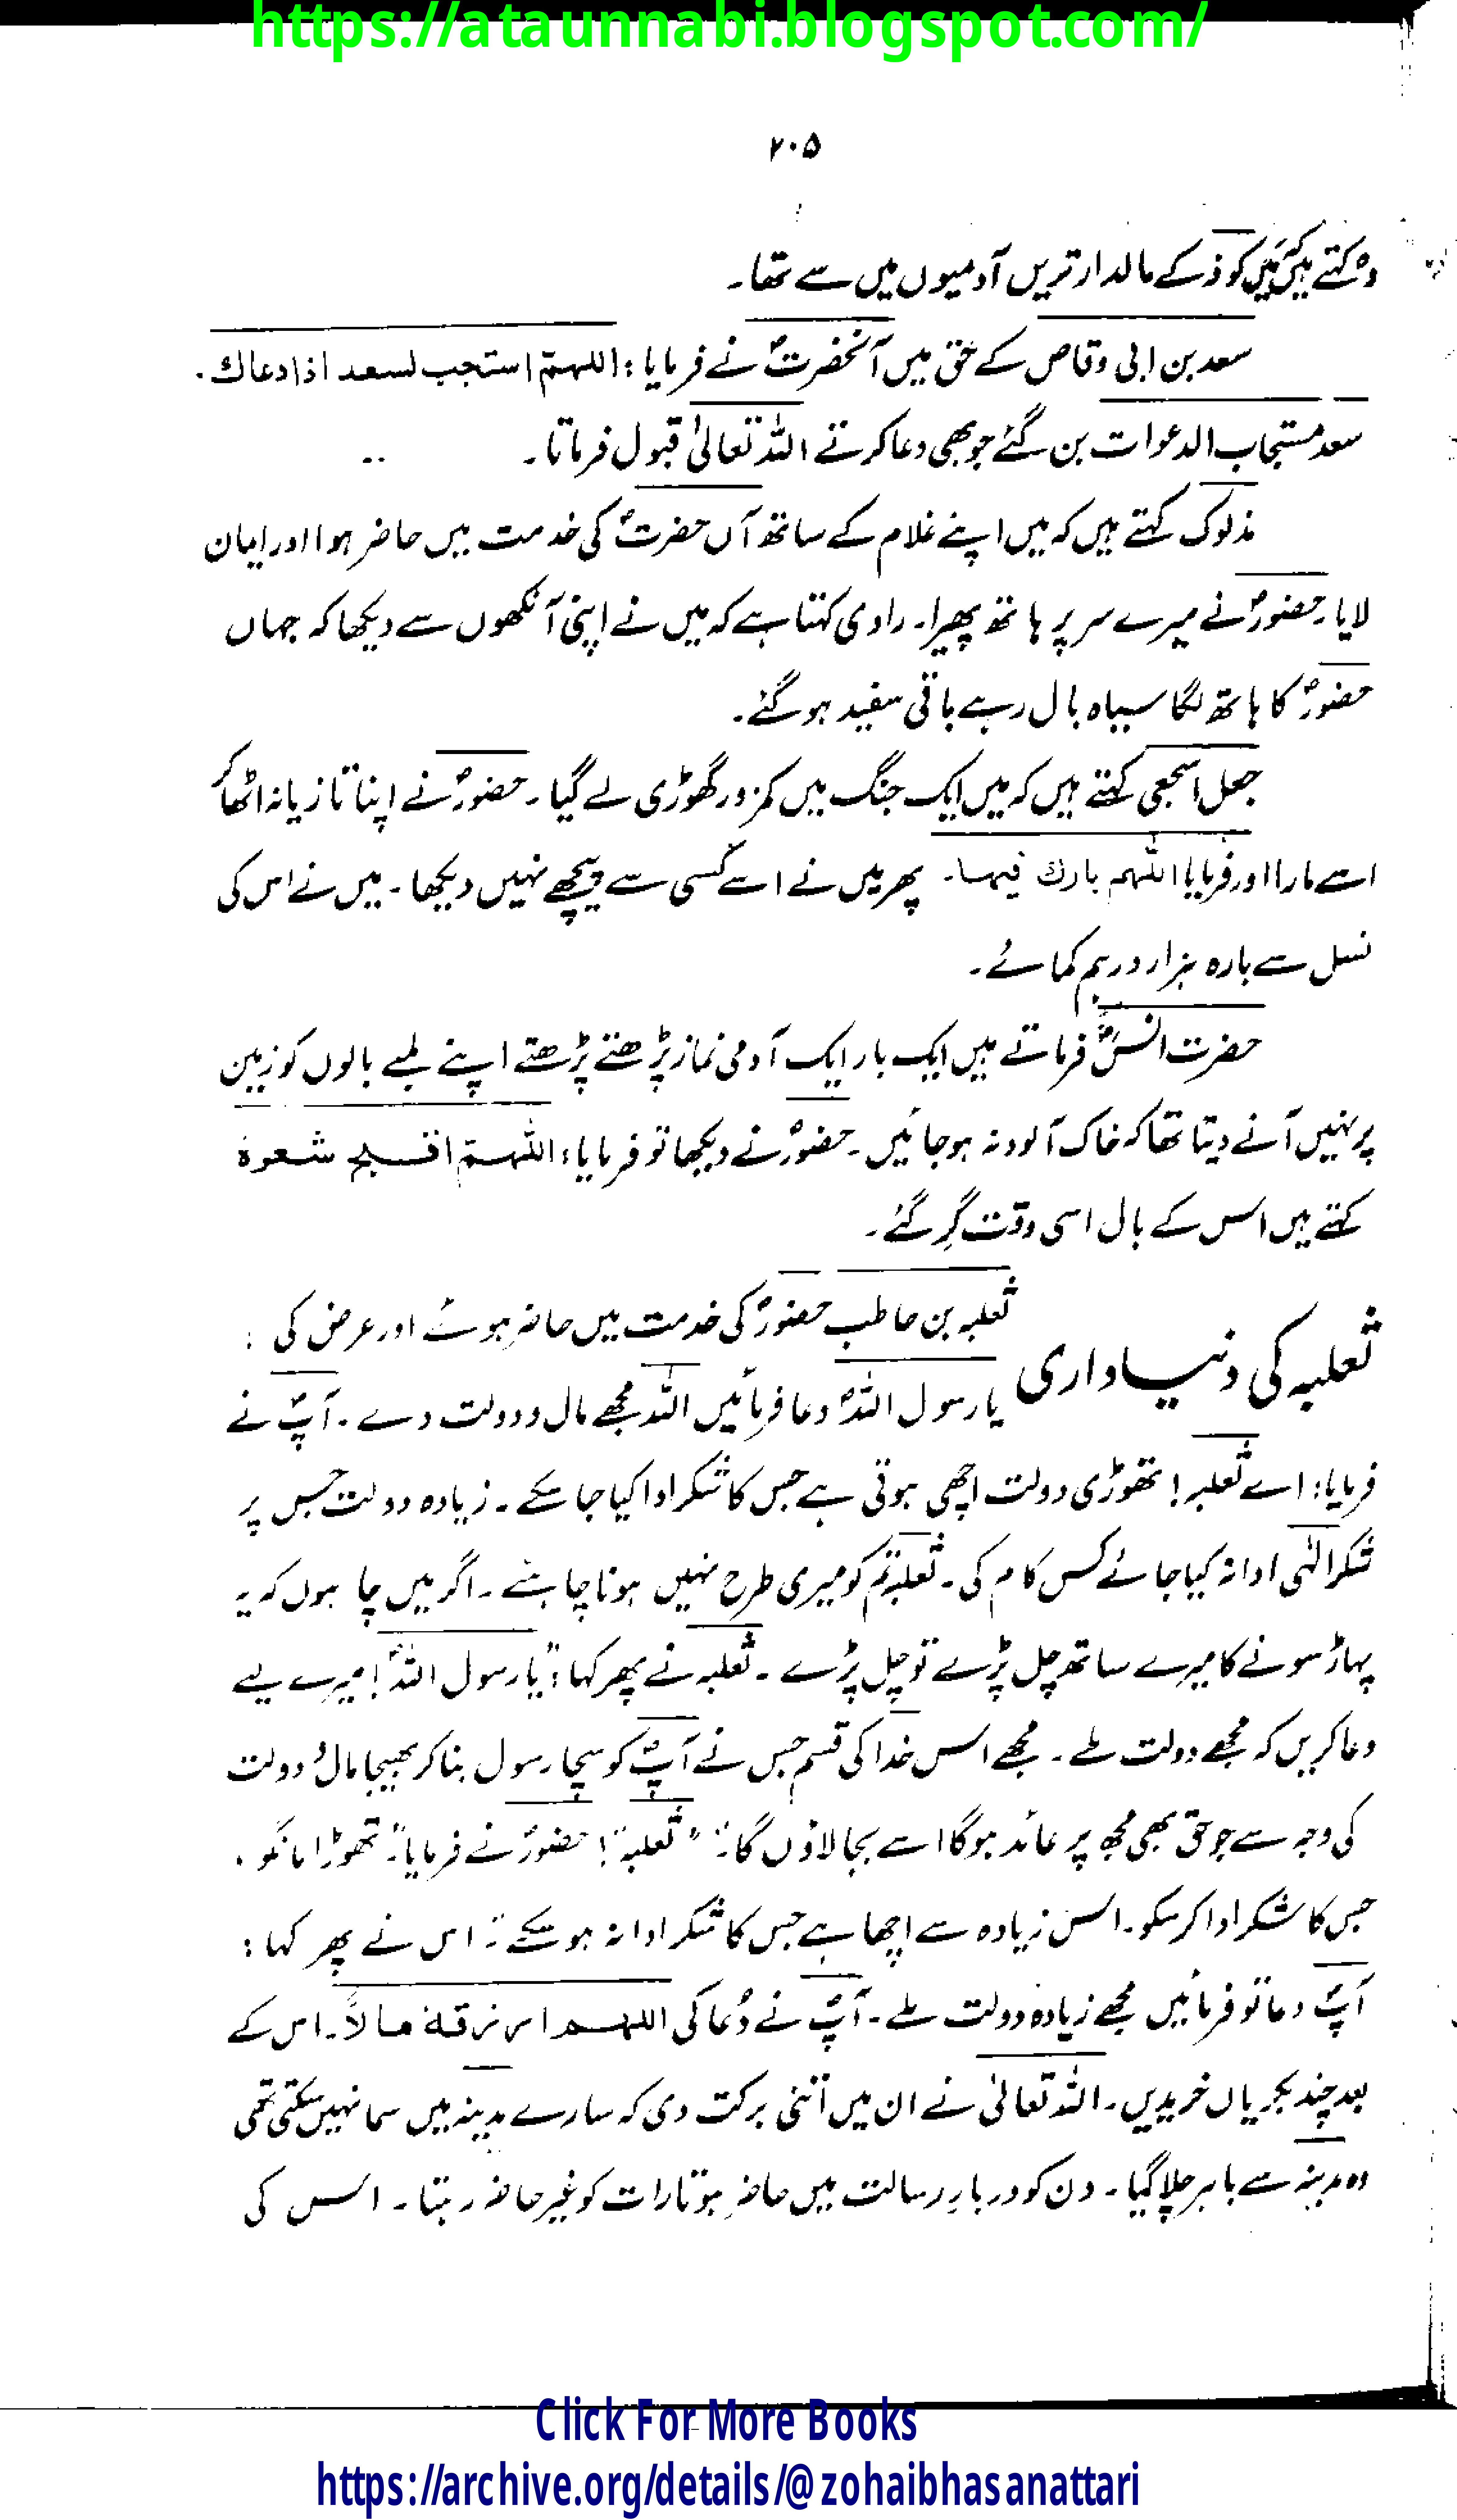 https://ataunnabi.blogspot.com/
۲۰۵
وہ کہتے ہیں میں کوفہ کے مالدار ترین آدمیوں میں سے تھا۔
سعد بن ابی وقاص کے حق میں آنحضرتؐ نے فرمایا: اللہمّ استجب لسعد اذا دعاك۔
سعد مستجاب الدعوات بن گئے جو بھی دعا کرتے اللہ تعالیٰ قبول فرماتا۔
مذلوک کہتے ہیں کہ میں اپنے غلام کے ساتھ آں حضرتؐ کی خدمت میں حاضر ہوا اور ایمان
لایا۔ حضورؐ نے میرے سر پر ہاتھ پھیرا۔ راوی کہتا ہے کہ میں نے اپنی آنکھوں سے دیکھا کہ جہاں
حضورؐ کا ہاتھ لگا سیاہ بال رہے باقی سفید ہو گئے۔
جعل اشجعی کہتے ہیں کہ میں ایک جنگ میں کمزور گھوڑی لے گیا۔ حضورؐ نے اپنا تازیانہ اٹھا کر
اسے مارا اور فرمایا اللہم بارك فیہا۔ پھر میں نے اسے کسی سے پیچھے نہیں دیکھا۔ میں نے اس کی
نسل سے بارہ ہزار درہم کمائے۔
حضرت انسؓ فرماتے ہیں ایک بار ایک آدمی نماز پڑھتے پڑھتے اپنے لمبے بالوں کو زمین
پر نہیں آنے دیتا تھا کہ خاک آلود نہ ہو جائیں۔ حضورؐ نے دیکھا تو فرمایا: اللہمّ اقبح شعرہ
کہتے ہیں اس کے بال اسی وقت گِر گئے۔
ثعلبہ کی دنیاداری
ثعلبہ بن حاطب حضورؐ کی خدمت میں حاضر ہوئے اور عرض کی :
یا رسول اللہؐ دعا فرمائیں اللہ مجھے مال و دولت دے۔ آپؐ نے
فرمایا: اے ثعلبہ! تھوڑی دولت اچھی ہوتی ہے جس کا شکر ادا کیا جا سکے۔ زیادہ دولت جس پر
شکر الٰہی ادا نہ کیا جائے کس کام کی۔ ثعلبہ تم کو میری طرح نہیں ہونا چاہئے۔ اگر میں چاہوں کہ یہ
پہاڑ سونے کا میرے ساتھ چل پڑے تو چل پڑے۔ ثعلبہ نے پھر کہا: "یا رسول اللہؐ! میرے لیے
دعا کریں کہ مجھے دولت ملے۔ مجھے اس خدا کی قسم جس نے آپؐ کو سچا رسول بنا کر بھیجا مال و دولت
کی وجہ سے جو حق بھی مجھ پر عائد ہوگا اسے بجا لاؤں گا۔" "ثعلبہ"! حضورؐ نے فرمایا: "تھوڑا مانگو۔
جس کا شکر ادا کر سکو۔ اس زیادہ سے اچھا ہے جس کا شکر ادا نہ ہو سکے"۔ اس نے پھر کہا :
آپؐ دعا تو فرمائیں مجھے زیادہ دولت ملے۔ آپؐ نے دُعا کی اللہم ارزقہ مالاً۔ اس کے
بعد چند بکریاں خریدیں۔ اللہ تعالیٰ نے ان میں اتنی برکت دی کہ سارے مدینہ میں سما نہیں سکتی تھی
وہ مدینہ سے باہر چلا گیا۔ دن کو دربارِ رسالت میں حاضر ہوتا رات کو غیر حاضر رہتا۔ اس کی
Click For More Books
https://archive.org/details/@zohaibhasanattari